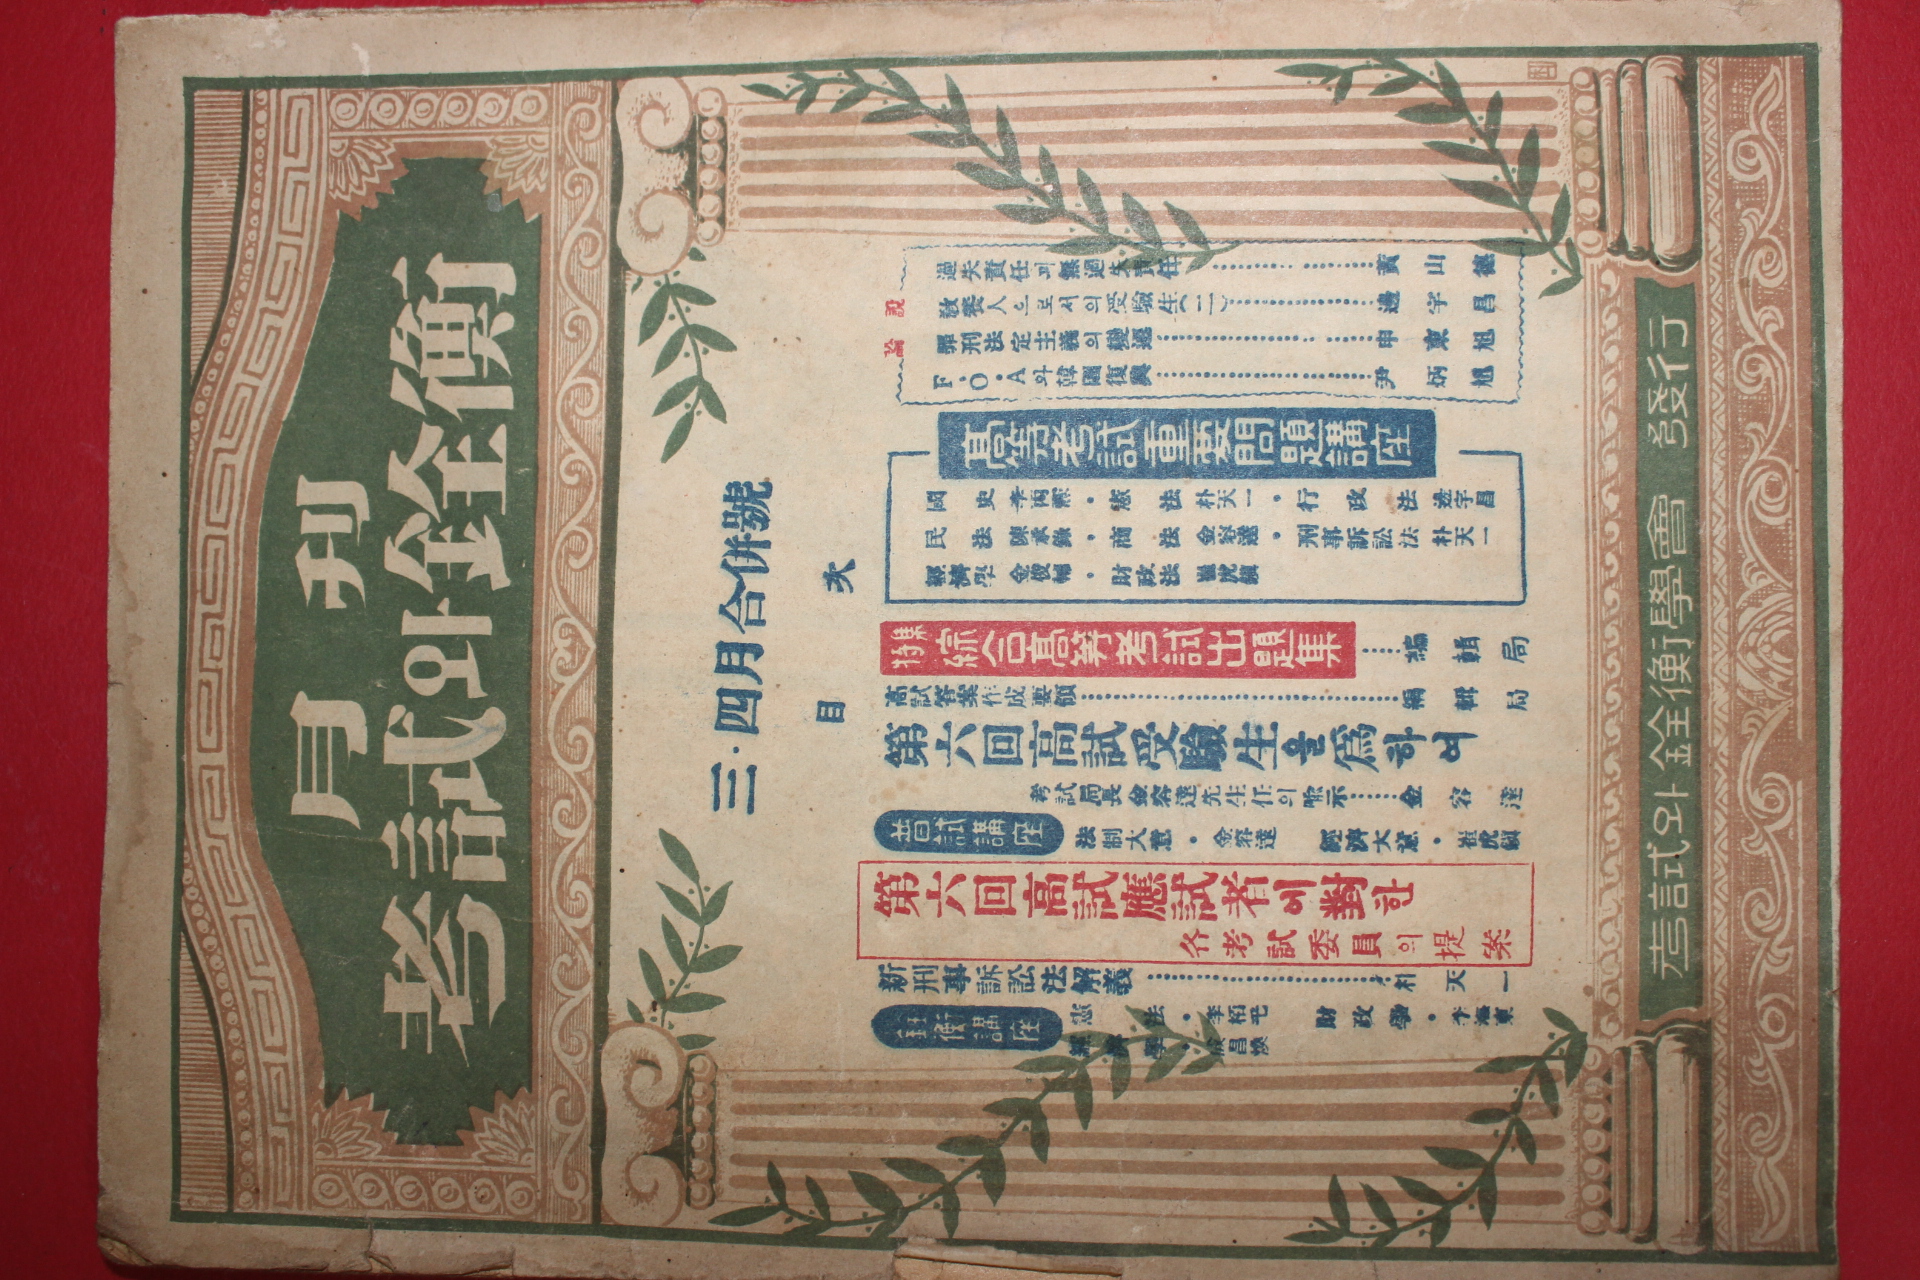 月刊
考試와銓衡
三·四月合併號
目次
論說
過失責任과無過失責任 黃山德
敎養人으로서의受驗生(一) 邊宇昌
罪刑法定主義의變遷 申東旭
F·O·A와韓國復興 尹炳旭
高等考試重要問題講座
國史 李丙燾·憲法 朴天一·行政法 邊宇昌
民法 陳承錄·商法 金容進·刑事訴訟法 朴天一
經濟學 金俊輔·財政法 崔虎鎭
特集 綜合高等考試出題集 編輯局
高試答案作成要領 編輯局
第六回高試受驗生을爲하여
考試局長金容達先生任의示 金容達
普試講座 法制大意·金容達 經濟大意·崔虎鎭
第六回高試應試者에對한
各考試委員의提案
新刑事訴訟法解義 朴天一
銓衡講座 憲法·李 財政學·李海東
經濟學·成昌煥
考試와銓衡學會 發行